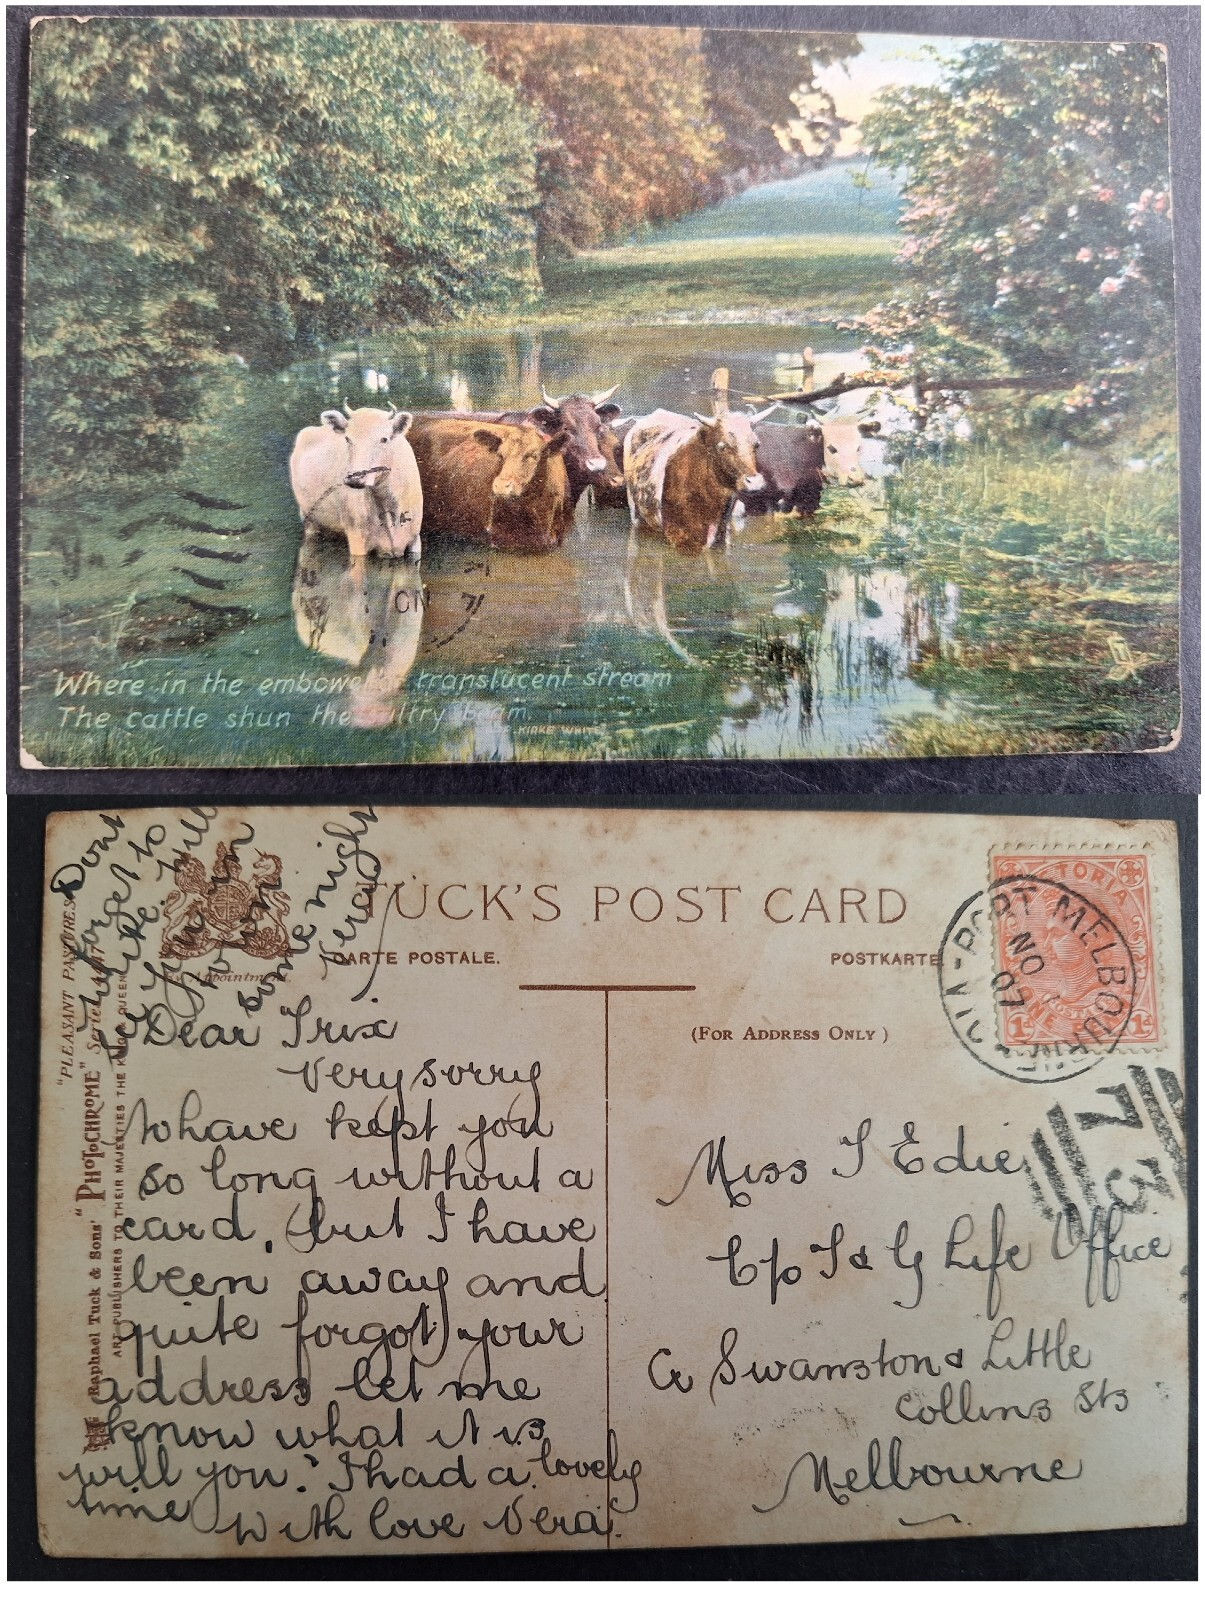 Where in the embowe translucent stream
The cattle shun the sultry beam.
KIRKE WHITE
ON 7
Dont
forget to
take. will
you in
to win
some night
Vera
TUCK'S POST CARD
CARTE POSTALE.
POSTKARTE
(FOR ADDRESS ONLY)
Appointment.
"PLEASANT PASTURES" Series
Raphael Tuck & Sons' "PHOTOCHROME"
ART PUBLISHERS TO THEIR MAJESTIES THE KING & QUEEN
VICTORIA
ONE
1d 1d
PORT MELBOURNE VIC
NO 1
07
Dear Trix
Very sorry
to have kept you
so long without a
card, but I have
been away and
quite forgot your
address let me
know what it is
will you. I had a lovely
time
With love Vera.
Miss T Edie
C/o T & G Life Office
Cr Swanston & Little
Collins Sts
Melbourne